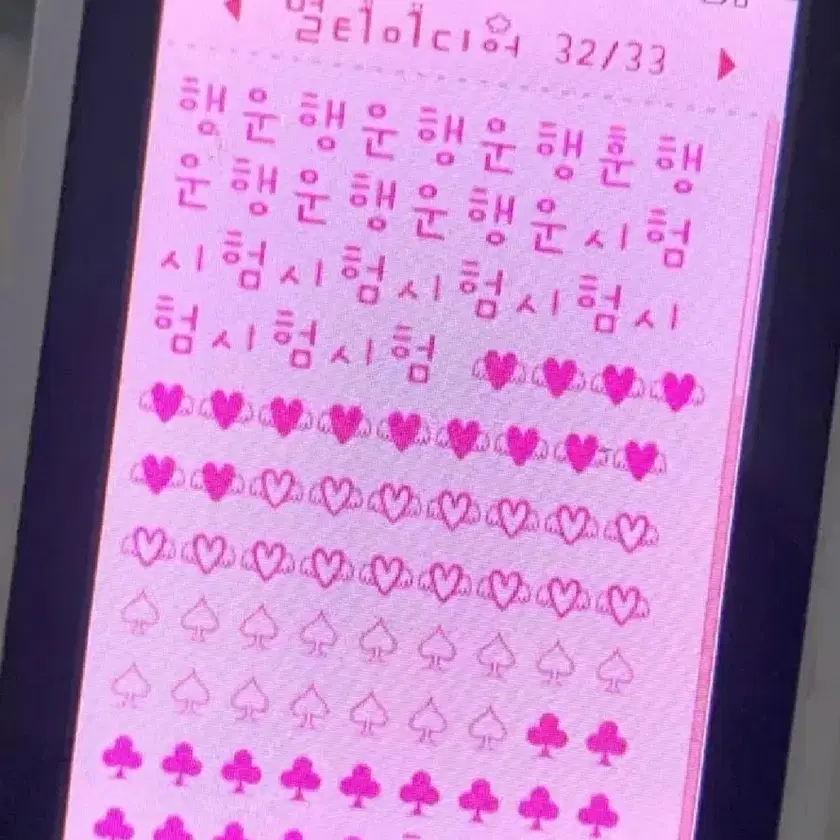 멀티미디어 32/33
행운행운행운행운행
운행운행운행운시험
시험시험시험시험시
험시험시험